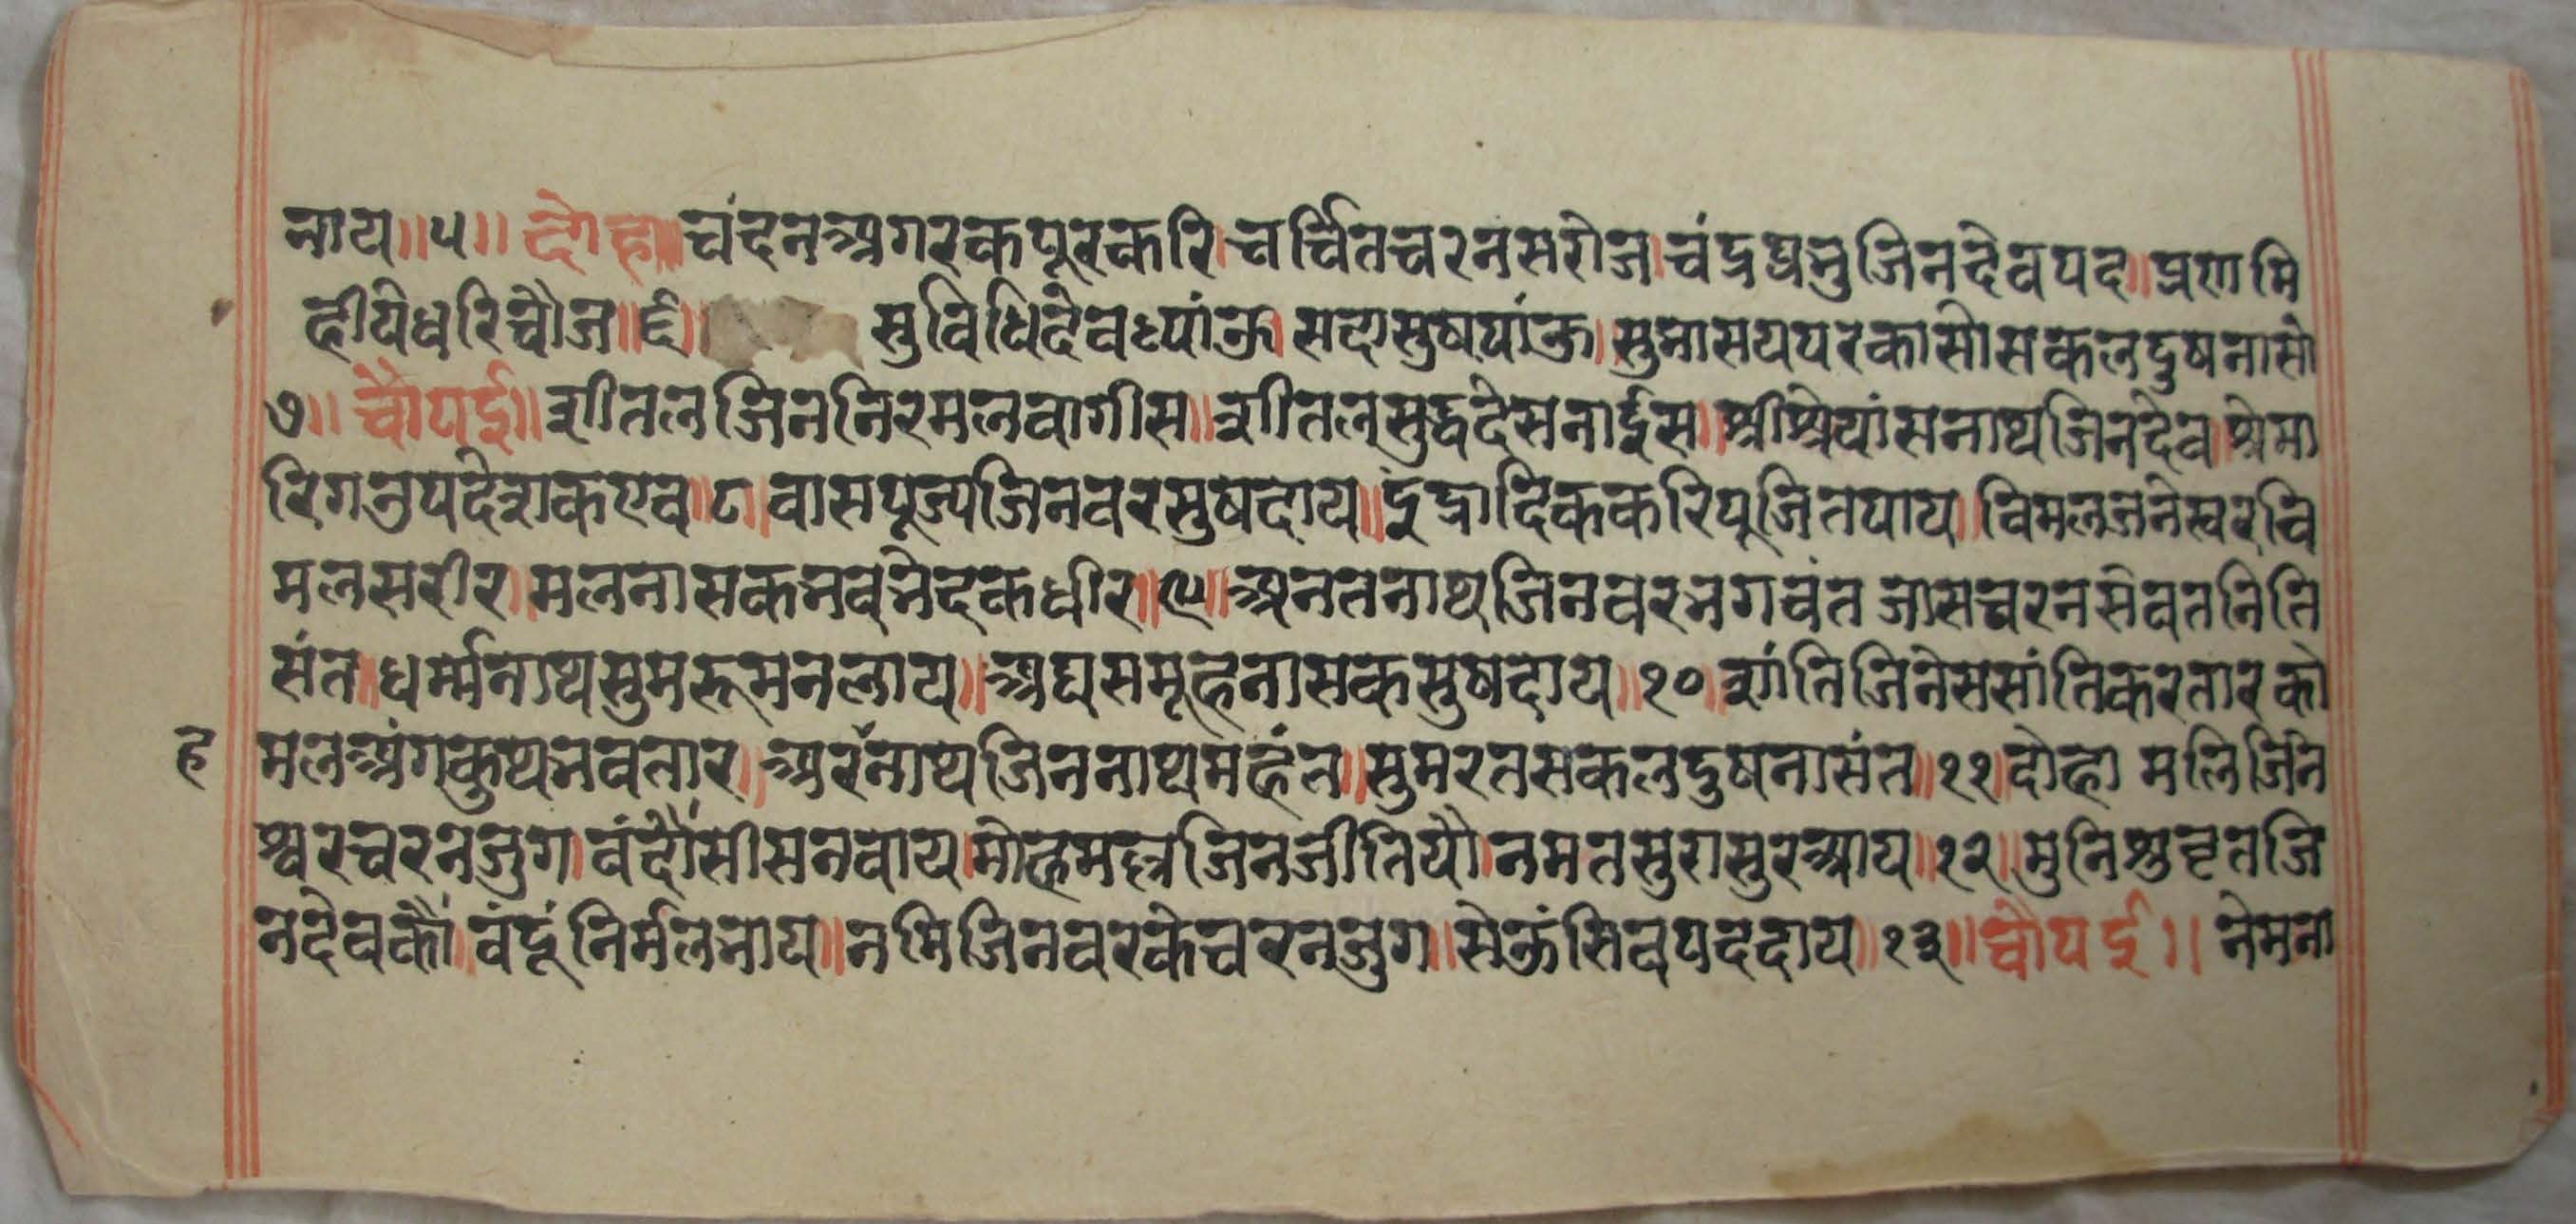 नाय॥५॥ दोहा॥ चंदनअगरकपूरकरि।चर्चितचरनसरोज।चंद्रप्रभुजिनदेवपद॥प्रणमि
हीयेधरिचौज॥६॥ सुविधिदेवध्यांऊ।सदासुषपांऊ।सुभासयपरकासी।सकलदुषनासी
७॥ चौपई॥ शीतलजिननिरमलवागीस॥शीतलसुद्धदेसनाईस॥श्रीश्रेयांसनाथजिनदेव।श्रेमा
रिगनुपदेशकएव॥८॥वासपूज्यजिनवरसुषदाय॥इंद्रादिककरिपूजितपाय॥विमलजनेस्वरवि
मलसरीर।मलनासकभवभेदकधीर॥९॥अनतनाथजिनवरभगवंत जासचरनसेवतनिति
संत॥धर्म्मनाथसुमरूमनलाय॥अघसमूहनासकसुषदाय॥१०॥शांतिजिनेससांतिकरतारको
ह
मलअंगकुथभवतार॥अरनाथजिननाथमहंत॥सुमरतसकलदुषनासंत॥११।दोहा मलिजिने
श्वरचरनजुग।वंदौंसीसनवाय।मोहमल्लजिनजीतियौ।नमतसुरासुरआय॥१२॥मुनिश्रुवृतजि
नदेवकौं।वंदूंनिर्मलभाय॥नमिजिनवरकेचरनजुग॥सेऊंसिवपददाय॥१३॥ चौपई॥ नेमना